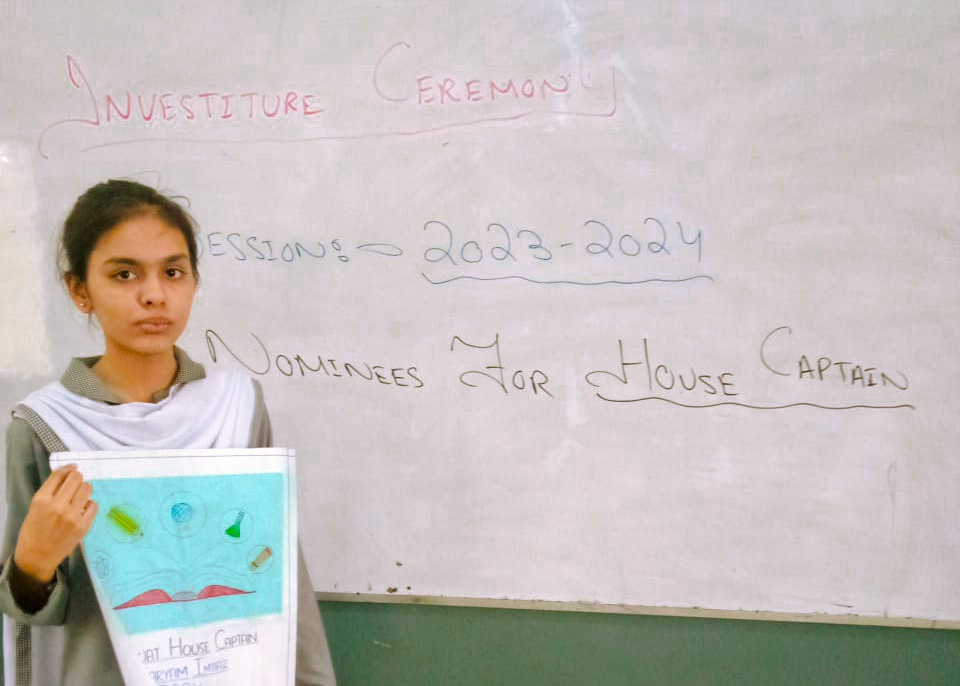 INVESTITURE CEREMONY
ESSION:- 2023-2024
NOMINEES FOR HOUSE CAPTAIN
HOUSE CAPTAIN